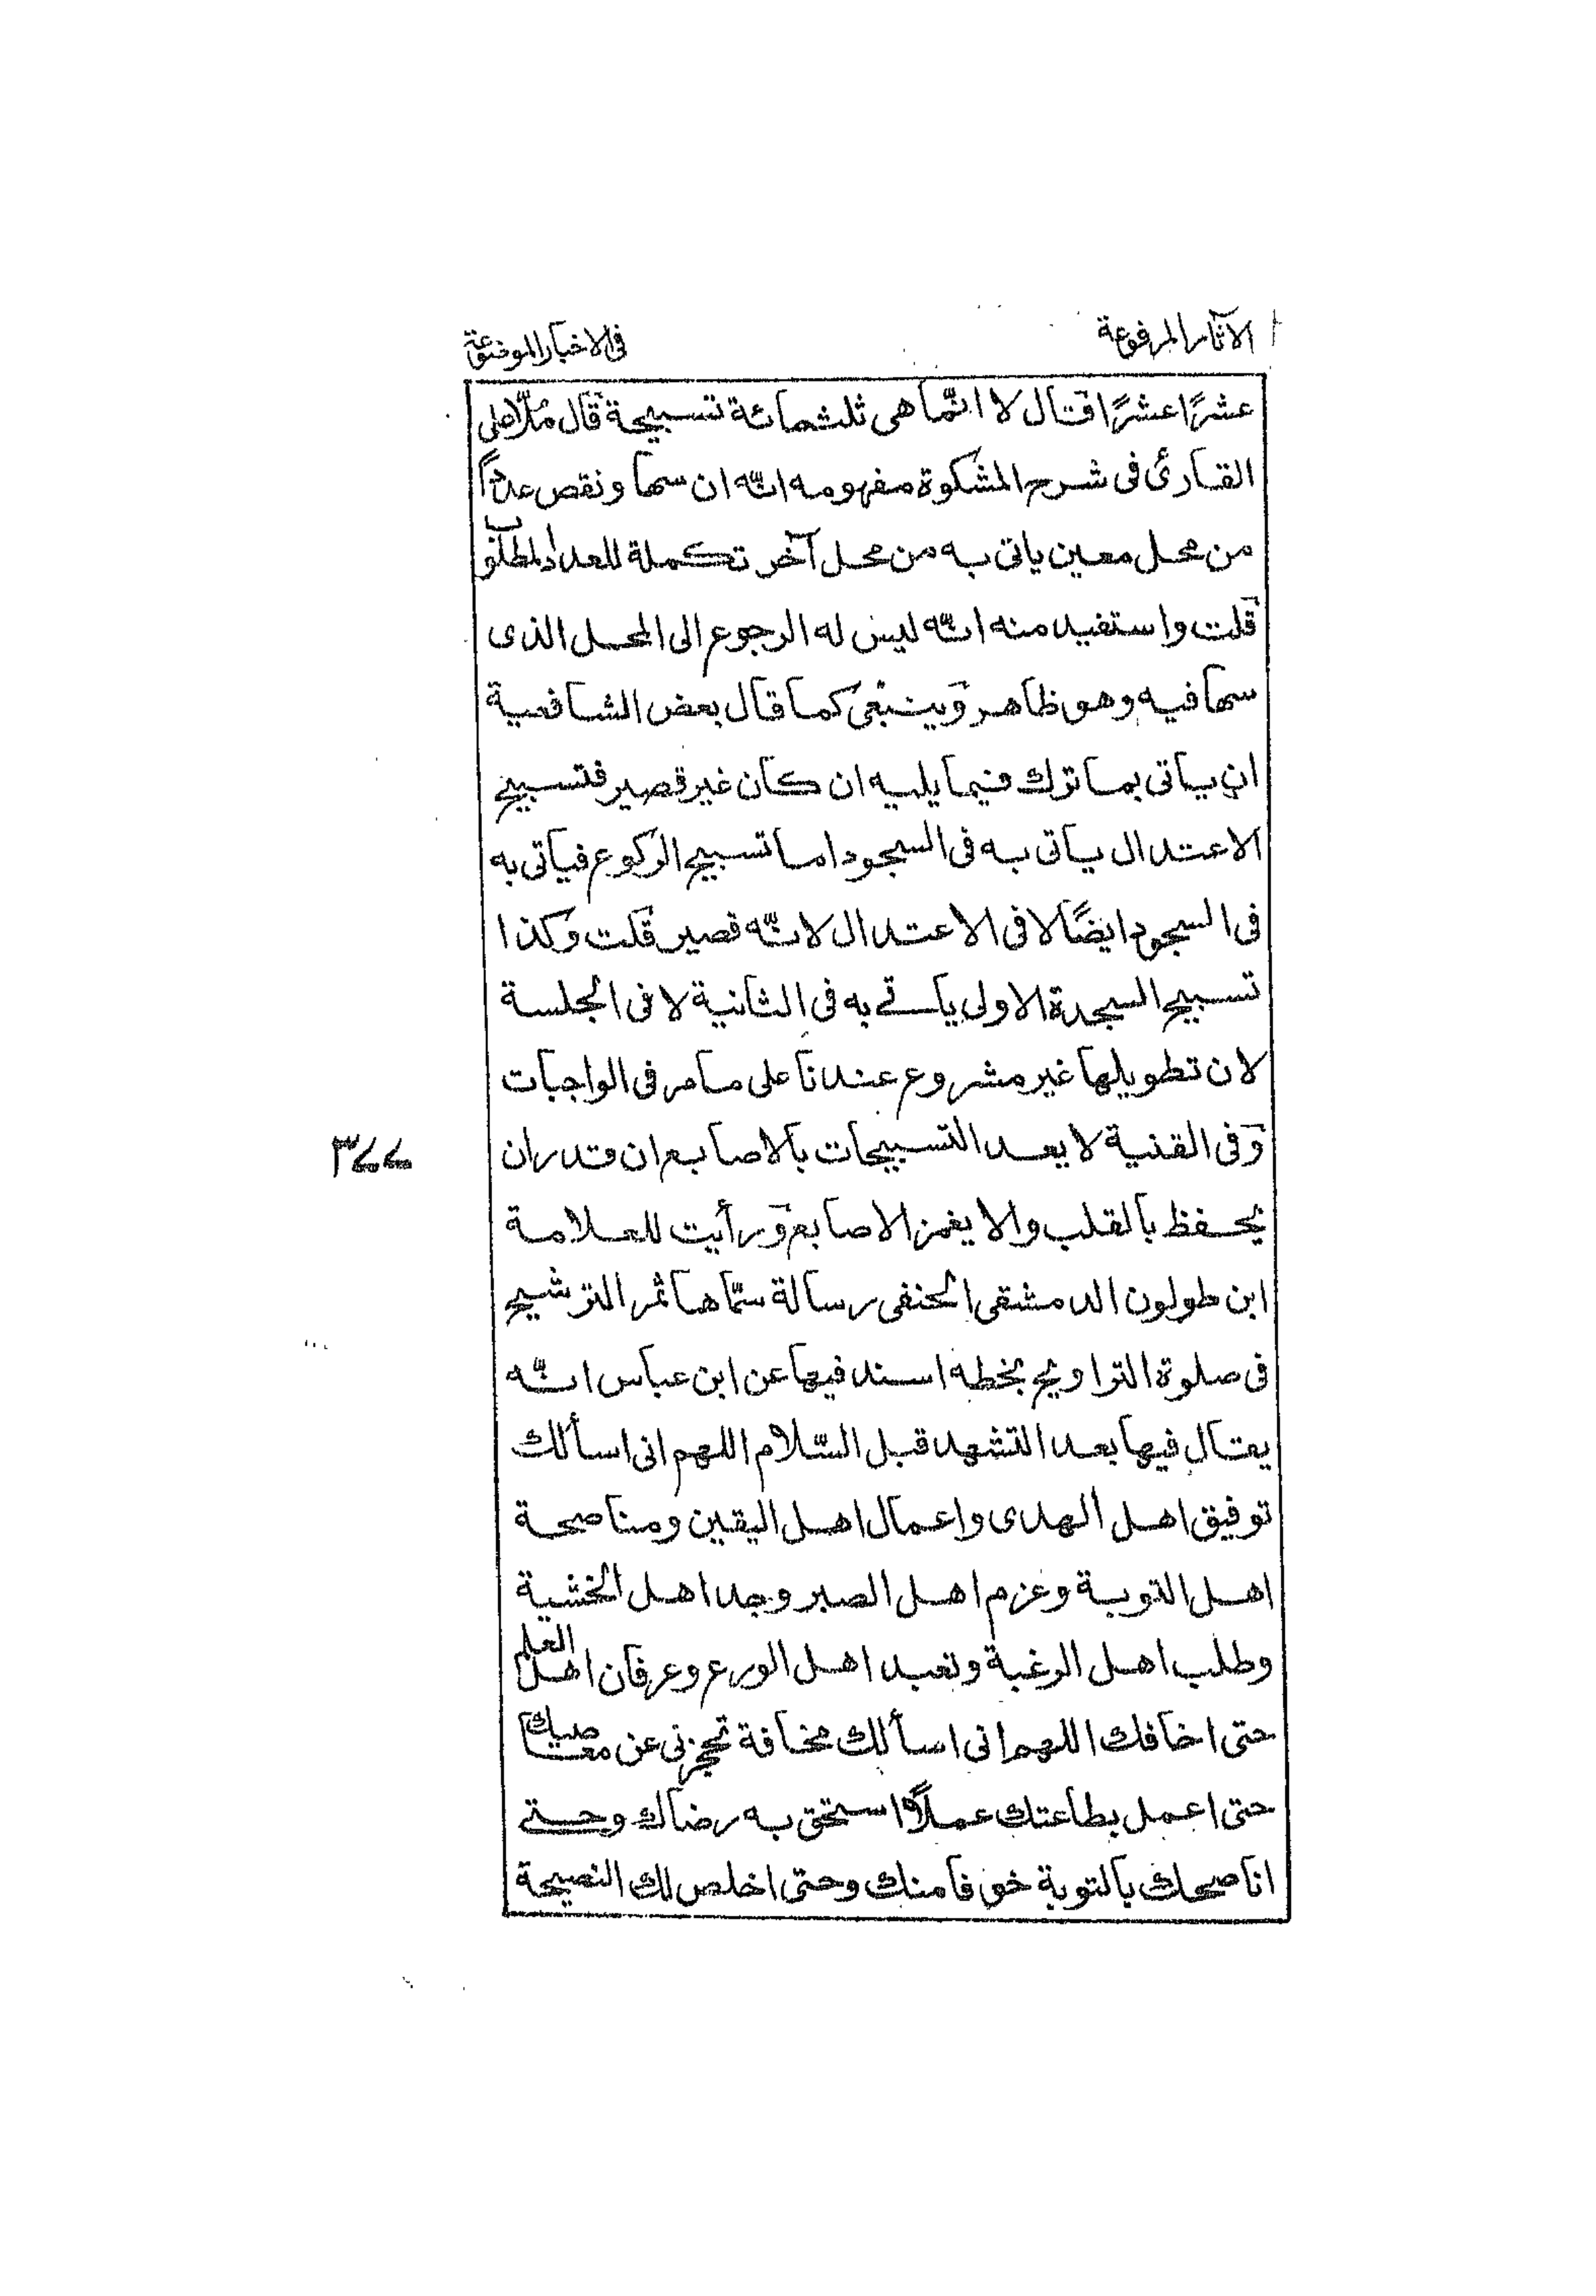 الآثار المرفوعة
فى الاخبار الموضوعة
عشرًا عشرًا قال لا انّما هى ثلثمائة تسبيحة قال مُلّا على
القارئ فى شرح المشكوة مفهومه انّه ان سها ونقص عددًا
من محل معين ياتى به من محل آخر تكملة للعدد المطلوب
قلت واستفيد منه انّه ليس له الرجوع الى المحل الذى
سها فيه وهو ظاهر وينبغى كما قال بعض الشافعية
ان ياتى بما ترك فيما يليه ان كان غير قصير فتسبيح
الاعتدال ياتى به فى السجود اما تسبيح الركوع فياتى به
فى السجود ايضًا لا فى الاعتدال لانّه قصير قلت وكذا
تسبيح السجدة الاولى ياتے به فى الثانية لا فى الجلسة
لان تطويلها غير مشروع عندنا على ما مر فى الواجبات
وفى القنية لا يعد التسبيحات بالاصابع ان قدر ان
يحفظ بالقلب والا يغمز الاصابع ورأيت للعلامة
ابن طولون الدمشقى الحنفى رسالة سمّاها ثمر الترشيح
فى صلوة التراويح بخطه اسند فيها عن ابن عباس انّه
يقال فيها بعد التشهد قبل السّلام اللهم انى اسألك
توفيق اهل الهدى واعمال اهل اليقين ومناصحة
اهل التوبة وعزم اهل الصبر وجد اهل الخشية
وطلب اهل الرغبة وتعبد اهل الورع وعرفان اهل العلم
حتى اخافك اللهم انى اسألك مخافة تحجزنى عن معاصيك
حتى اعمل بطاعتك عملًا استحق به رضاك وحتے
اناصحك بالتوبة خوفا منك وحتى اخلص لك النصيحة
٣٧٧